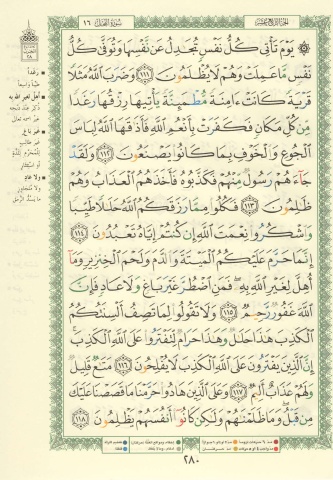 سُورَةُ النَّحْلِ ١٦
الجُزْءُ الرَّابِعَ عَشَرَ
يَوْمَ تَأْتِي كُلُّ نَفْسٍ تُجَادِلُ عَن نَّفْسِهَا وَتُوَفَّىٰ كُلُّ
نَفْسٍ مَّا عَمِلَتْ وَهُمْ لَا يُظْلَمُونَ ١١١ وَضَرَبَ اللَّهُ مَثَلًا
قَرْيَةً كَانَتْ ءَامِنَةً مُّطْمَئِنَّةً يَأْتِيهَا رِزْقُهَا رَغَدًا
مِّن كُلِّ مَكَانٍ فَكَفَرَتْ بِأَنْعُمِ اللَّهِ فَأَذَاقَهَا اللَّهُ لِبَاسَ
الْجُوعِ وَالْخَوْفِ بِمَا كَانُوا يَصْنَعُونَ ١١٢ وَلَقَدْ
جَاءَهُمْ رَسُولٌ مِّنْهُمْ فَكَذَّبُوهُ فَأَخَذَهُمُ الْعَذَابُ وَهُمْ
ظَالِمُونَ ١١٣ فَكُلُوا مِمَّا رَزَقَكُمُ اللَّهُ حَلَالًا طَيِّبًا
وَاشْكُرُوا نِعْمَتَ اللَّهِ إِن كُنتُمْ إِيَّاهُ تَعْبُدُونَ ١١٤
إِنَّمَا حَرَّمَ عَلَيْكُمُ الْمَيْتَةَ وَالدَّمَ وَلَحْمَ الْخِنزِيرِ وَمَا
أُهِلَّ لِغَيْرِ اللَّهِ بِهِ فَمَنِ اضْطُرَّ غَيْرَ بَاغٍ وَلَا عَادٍ فَإِنَّ
اللَّهَ غَفُورٌ رَّحِيمٌ ١١٥ وَلَا تَقُولُوا لِمَا تَصِفُ أَلْسِنَتُكُمُ
الْكَذِبَ هَٰذَا حَلَالٌ وَهَٰذَا حَرَامٌ لِّتَفْتَرُوا عَلَى اللَّهِ الْكَذِبَ
إِنَّ الَّذِينَ يَفْتَرُونَ عَلَى اللَّهِ الْكَذِبَ لَا يُفْلِحُونَ ١١٦ مَتَاعٌ قَلِيلٌ
وَلَهُمْ عَذَابٌ أَلِيمٌ ١١٧ وَعَلَى الَّذِينَ هَادُوا حَرَّمْنَا مَا قَصَصْنَا عَلَيْكَ
مِن قَبْلُ وَمَا ظَلَمْنَاهُمْ وَلَٰكِن كَانُوا أَنفُسَهُمْ يَظْلِمُونَ ١١٨
رغداً
أهل لغير الله به
غير باغ
ولا عاد
٢٨٠